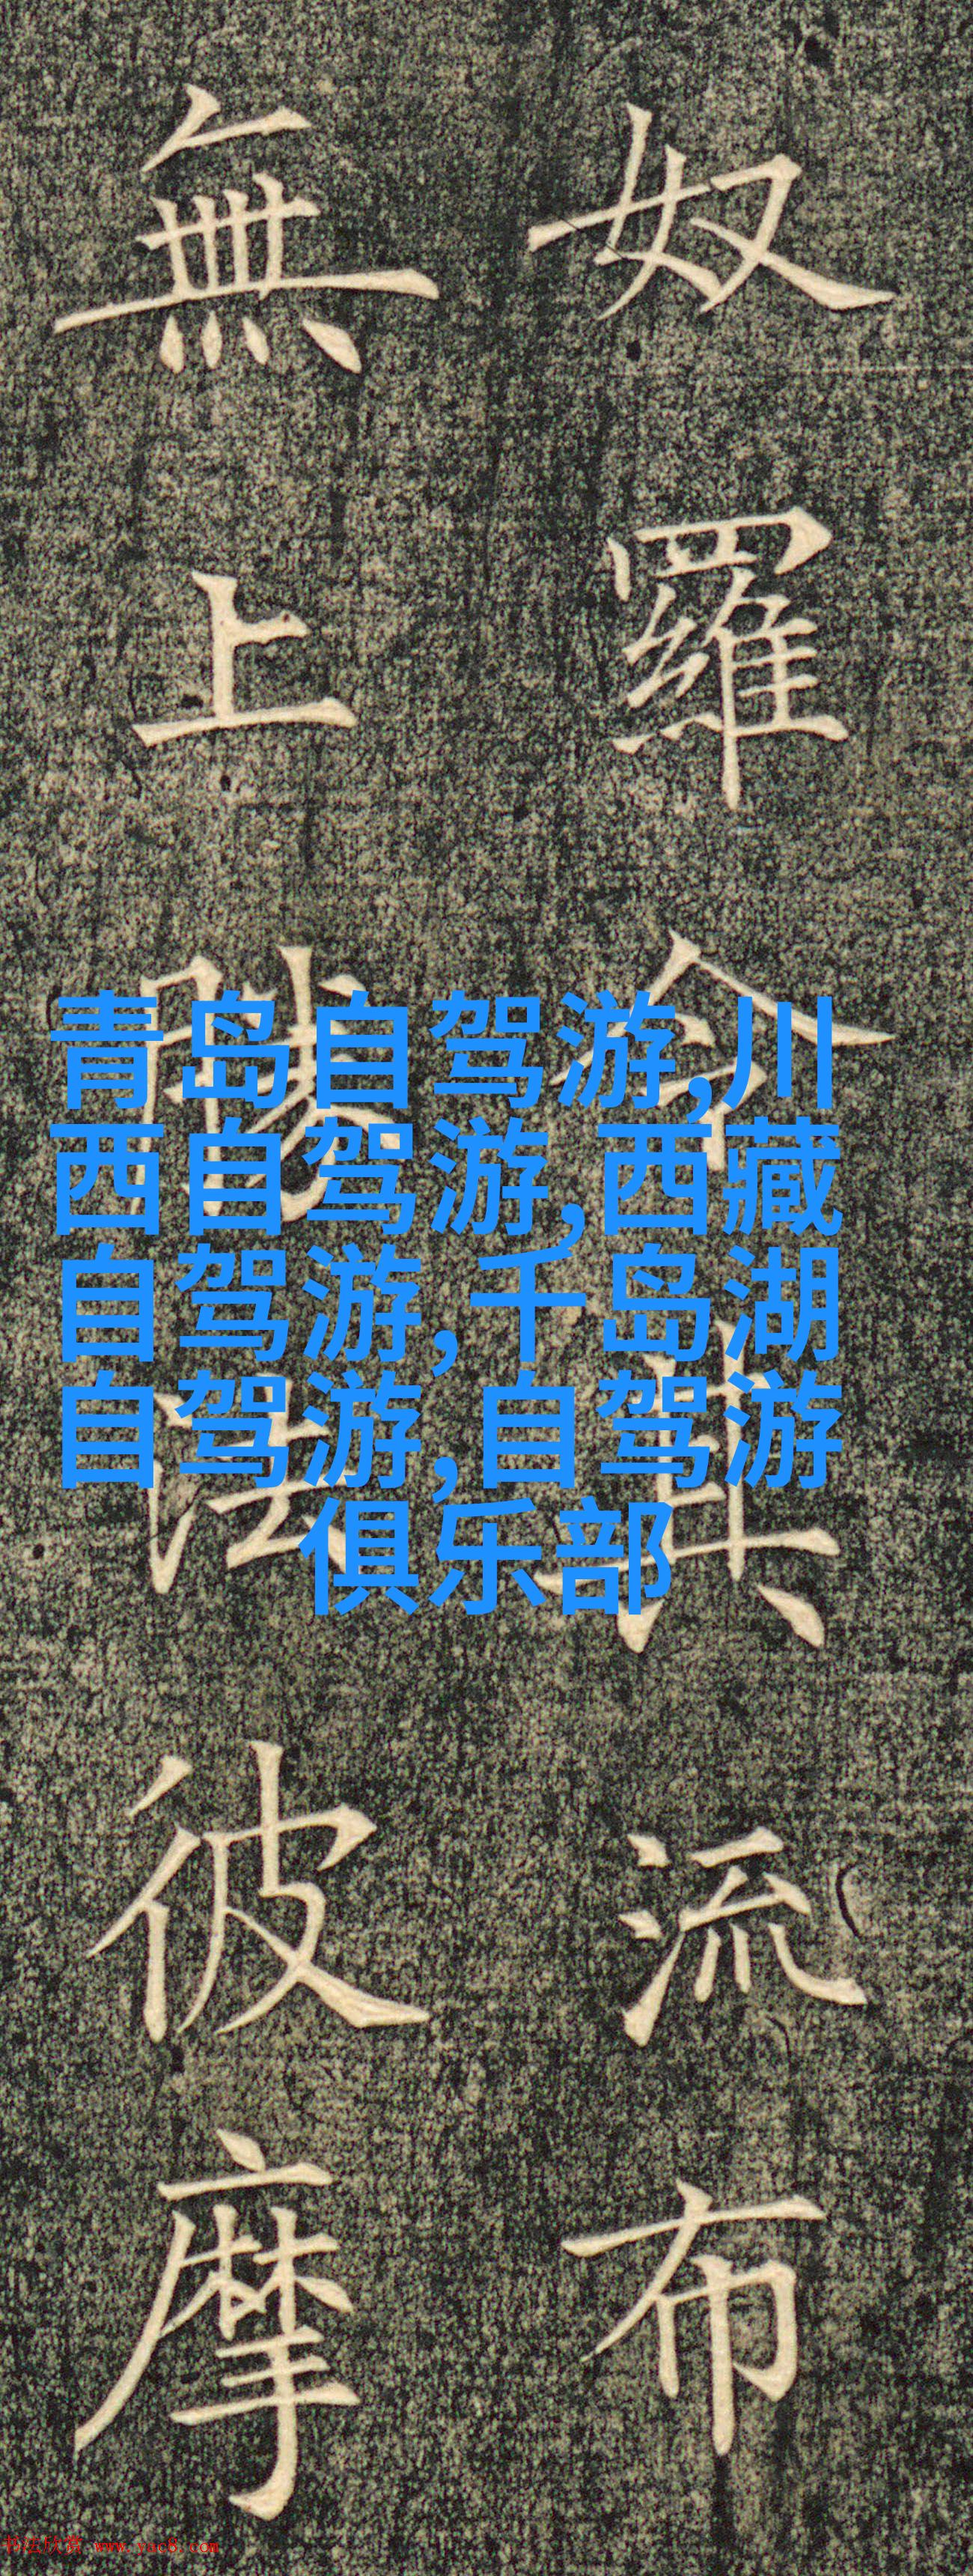 奴羅令其流布
無上勝法彼摩
青岛自驾游,川
西自驾游,西藏
自驾游,千岛湖
自驾游,自驾游
俱乐部
书法欣赏 www.yac8.com